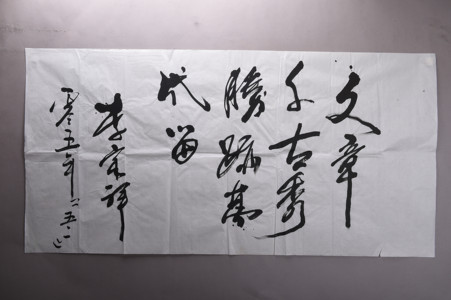 文章
千古秀
勝跡萬
代留
李宗祥
零五年